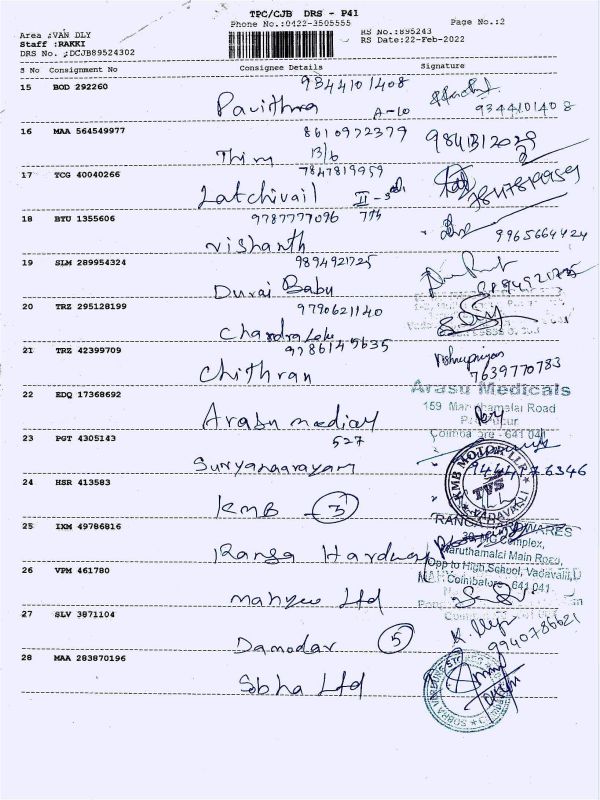 TPC/CJB DRS - P41
Phone No.:0422-3505555 Page No.:2
Area ;VAN DLY RS No.:895243
Staff :RAKKI RS Date:22-Feb-2022
DRS No. ;DCJB89524302
S No Consignment No Consignee Details Signature
15 BOD 292260 9344101408
Pavithra A-10 9344101408
16 MAA 564549977 8610972379
13/6
17 TCG 40040266 7847819959
Latchivail II-3rd 7847819959
18 BTU 1355606 9787777096 7th
Vishanth 9965664424
19 SLM 289954324 9894921725
Durai Babu
20 TRZ 295128199 9790621140
Chandra
21 TRZ 42399709 9786145635
Chithran Vishnupriyan 7639770783
22 EDQ 17368692 Arasu Medicals
Arasu medical 159 Maruthamalai Road
Coimbatore - 641 041
23 PGT 4305143 527
Suryanaarayam 9444976346
24 HSR 413583 KMB MOTOR
KMB 3 TVS VADAVALLI
25 IXM 49786816 RANGA HARDWARES
Ranga Hardwar Complex,
Maruthamalai Main Road,
Opp to High School, Vadavalli,
26 VPM 461780 Coimbatore 641 041
Ltd
27 SLV 3871104
Damodar 5 9940786621
28 MAA 283870196
Sobha Ltd